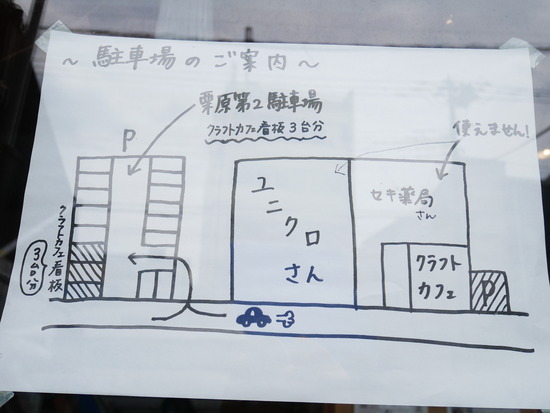 ～駐車場のご案内～
P
栗原第2駐車場
クラフトカフェ看板3台分
使えません!
クラフトカフェ看板
3台分
ユニクロ
さん
セキ薬局
さん
クラフト
カフェ
P